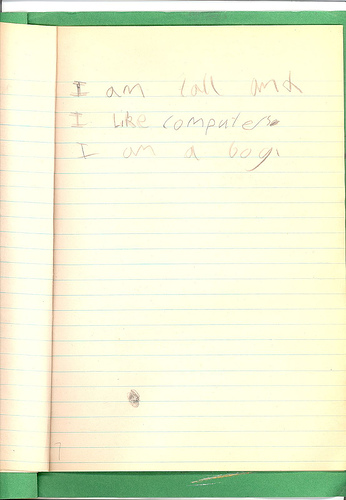 I am tall and
I Like computers
I am a boy.